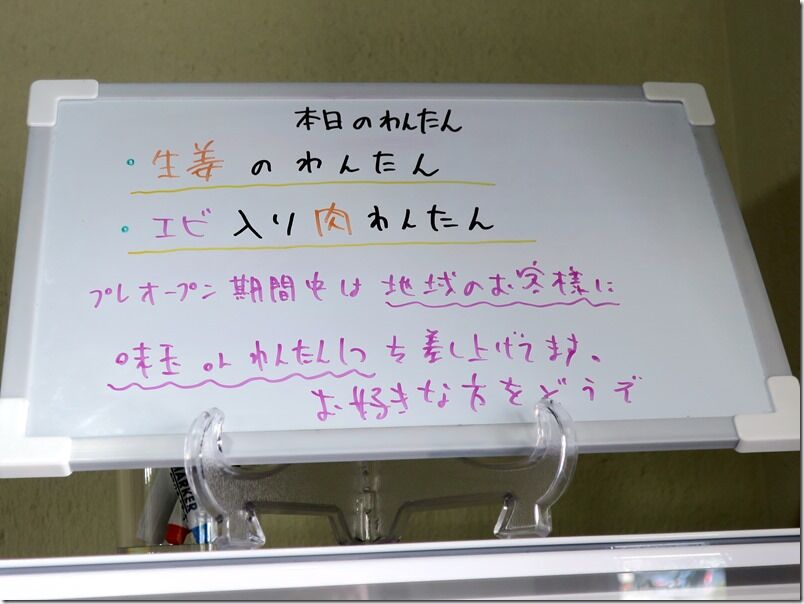 本日のわんたん
・生姜のわんたん
・エビ入り肉わんたん
プレオープン期間中は地域のお客様に
味玉 or わんたん1つを差し上げてます、
お好きな方をどうぞ
MARKER